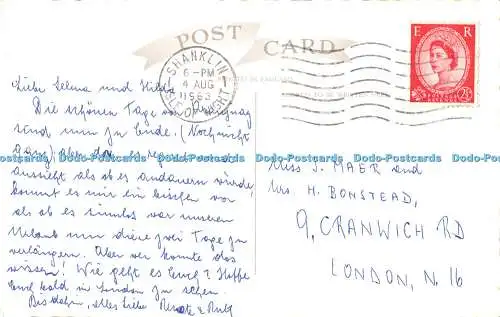 POST CARD
SHANKLIN
6-PM
4 AUG
ISLE OF WIGHT
E R
2½D
Liebe Selma und Hilde,
Die schönen Tage von
sind nun zu Ende. (Noch nicht
ganz) aber da es regnet und
aussieht als ob es andauern würde,
kommt es mir ein bischen vor
als ob es sinnlos war unseren
Urlaub um diese zwei Tage zu
verlängern. Aber wer konnte das
wissen! Wie geht es Euch? Hoffe
Euch bald in London zu sehen.
Bis dahin, alles Liebe Renate & Ruth
Miss J. MAER and
Mrs. H. BONSTEAD,
9, CRANWICH RD
LONDON, N. 16
Dodo-Postcards Dodo-Postcards Dodo-Postcards Dodo-Postcards Dodo-Postcards Dodo-Postcards